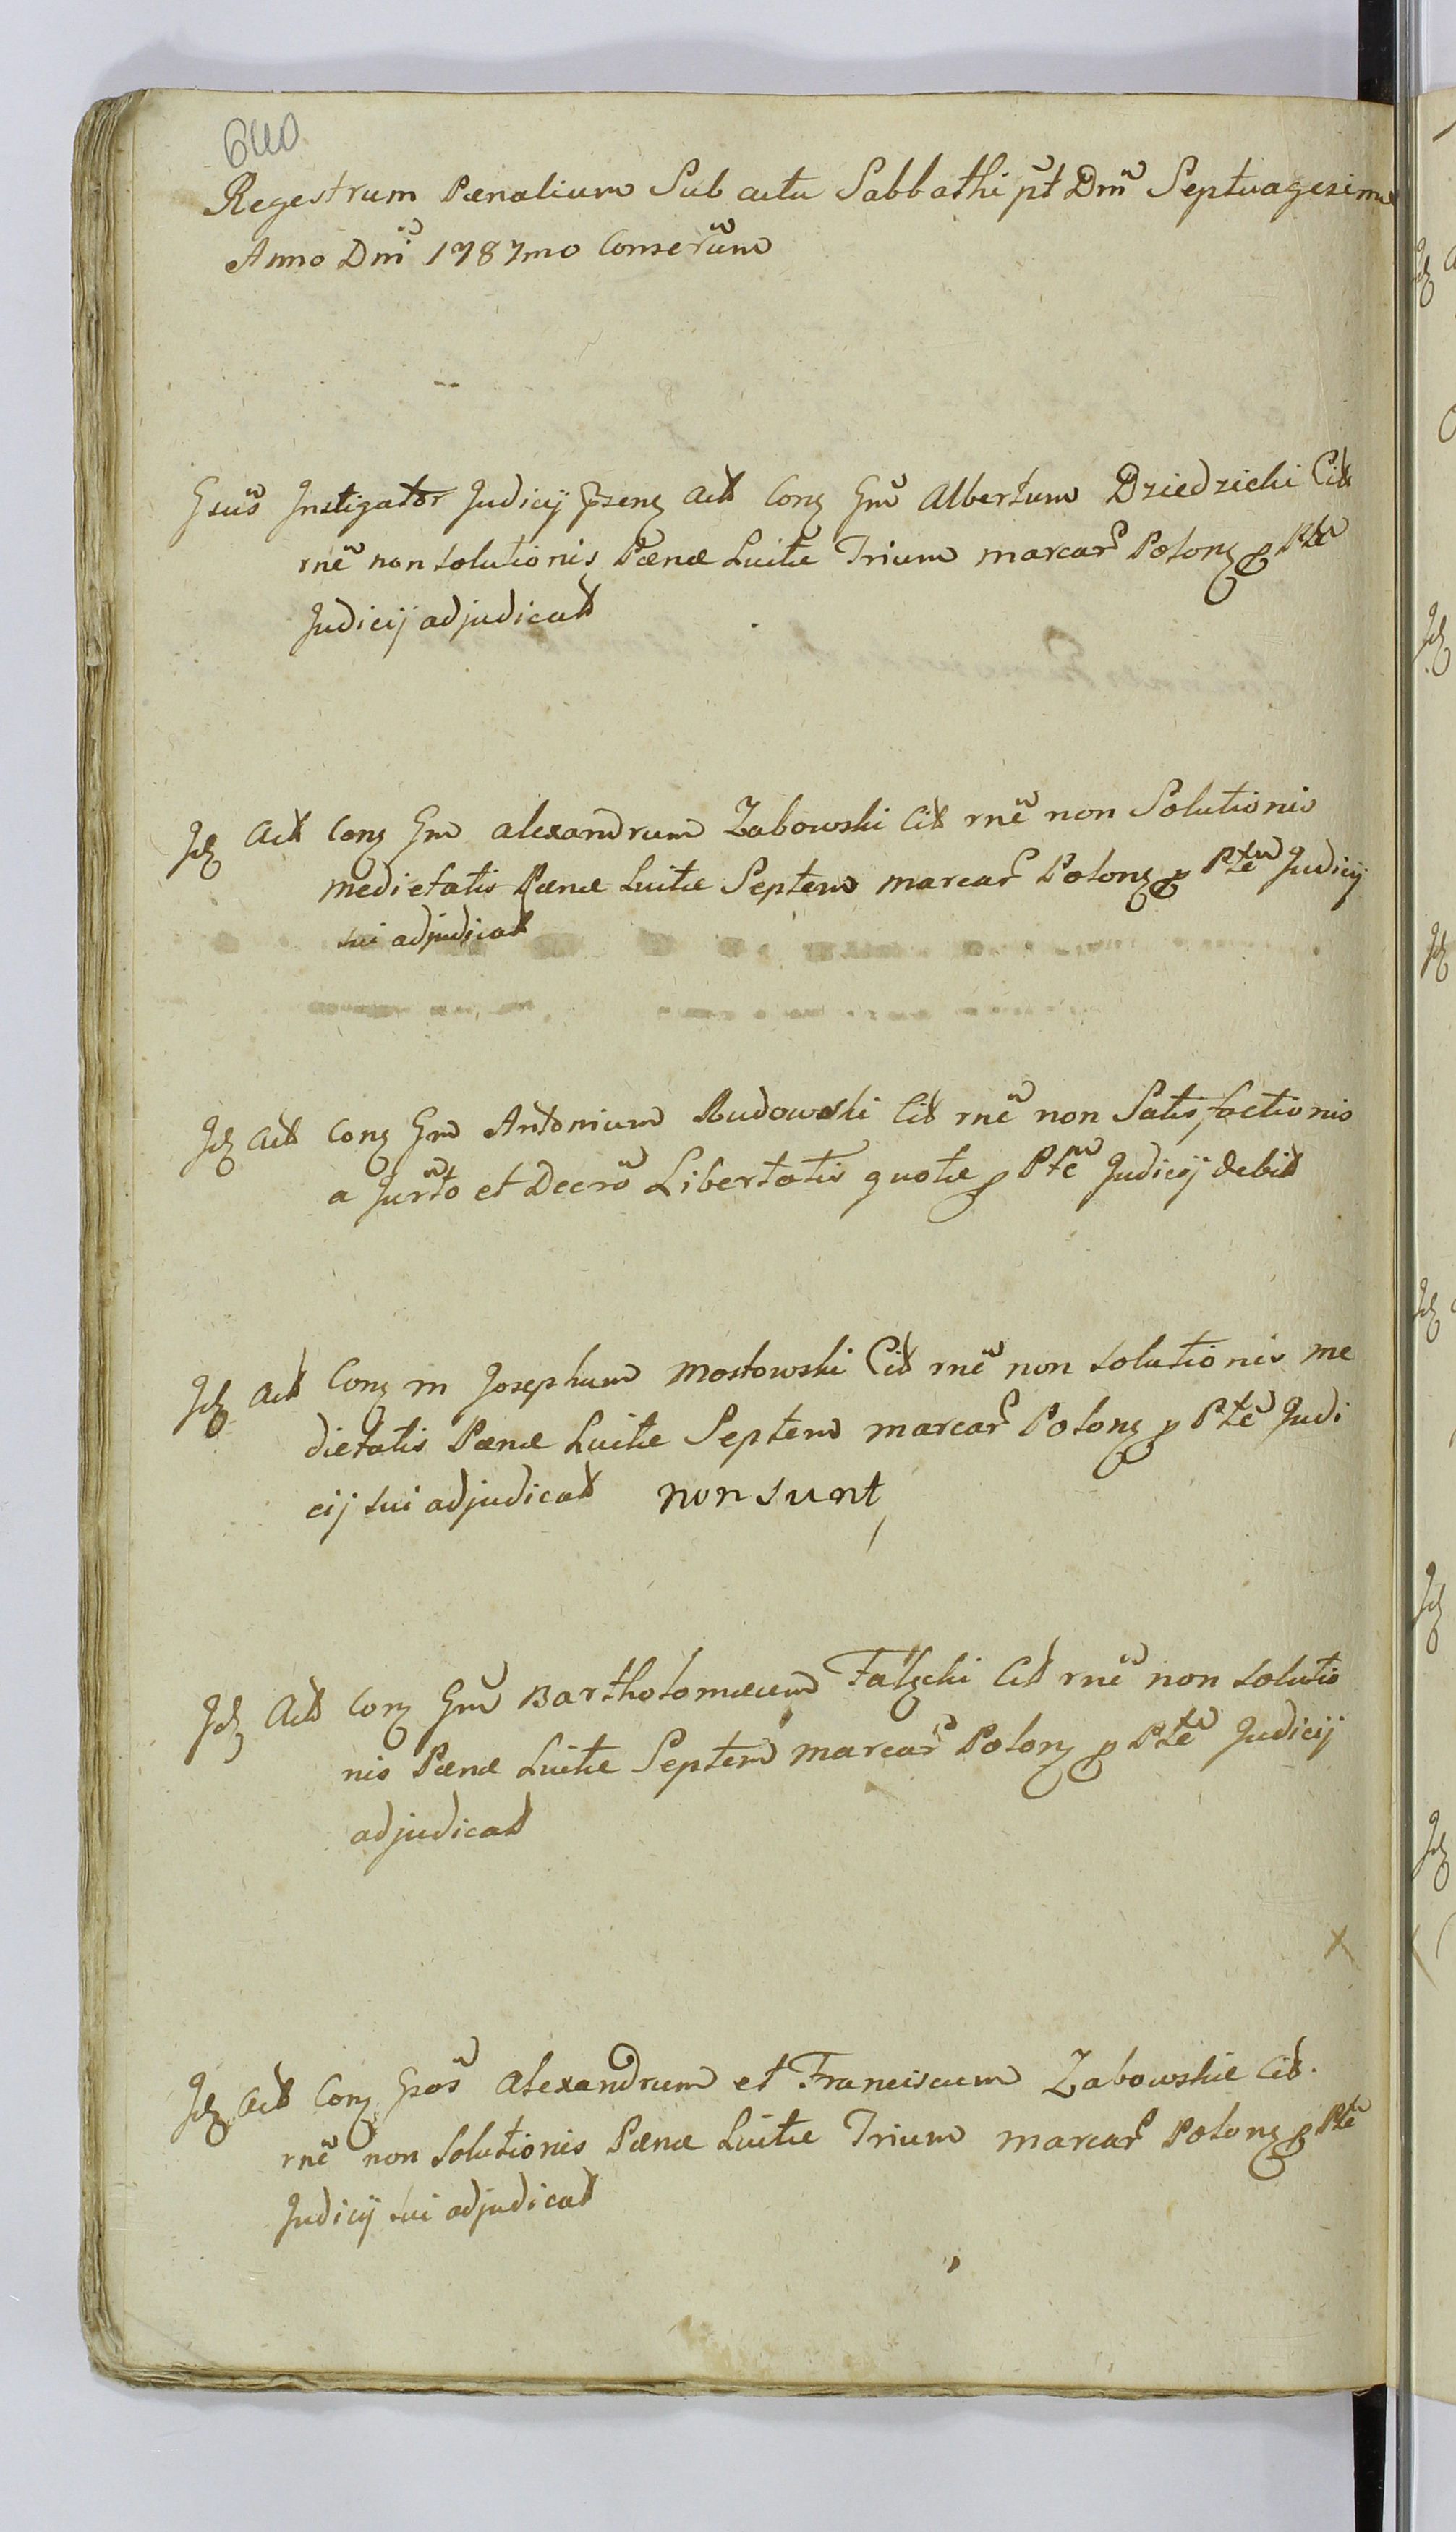 640
Regestrum Pœnalium Sub actu Sabbathi pt Dm̃ Septuagesimæ
Anno Dnĩ 1787mo Conserũm
Gsus̃ Instigator Judicij p̃senz Act Conz Gm̃ Albertum Dziedzicki Cit
rnẽ non solutionis Pœnæ Luitæ Trium marcar̃ Polonz p Ptẽ
Judicij adjudicat
Jdz Act Conz Gm alexandrum Zabowski Cit rnẽ non Solutionis
medietatis Pœnæ Luitæ Septem marcar̃ Polonz p Ptẽ Judicij
sui adjudicat
Jdz Act Conz Gm Antonium Rudowski Cit rnẽ non Satisfactionis
a Jurto et Decrõ Libertatis quotæ p Ptẽ Judicij debit
Jdz Act Conz m Josephum Mostowski Cit rnẽ non solutionis me
dietatis Pœnæ Luitæ Septem marcar̃ Polonz p Ptẽ Judi
cij sui adjudicat non sunt
Jdz Act Conz Gm̃ Bartholomæum Falęcki Cit rnẽ non solutio
nis Pœnæ Luitæ Septem marcar̃ Polonz p Ptẽ Judicij
adjudicat
Jdz Act Conz Gsos̃ Alexandrum et Franciscum Zabowskie Cit.
rnẽ non Solutionis Pœnæ Luitæ Trium marcar̃ Polonz p Ptẽ
Judicij sui adjudicat